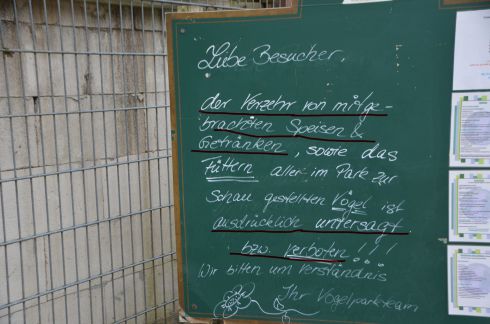 Liebe Besucher,
der Verzehr von mitge-
brachten Speisen &
Getränken, sowie das
Füttern aller im Park zur
Schau gestellten Vögel ist
ausdrücklich untersagt
bzw. verboten!!!
Wir bitten um Verständnis
Ihr Vogelparkteam